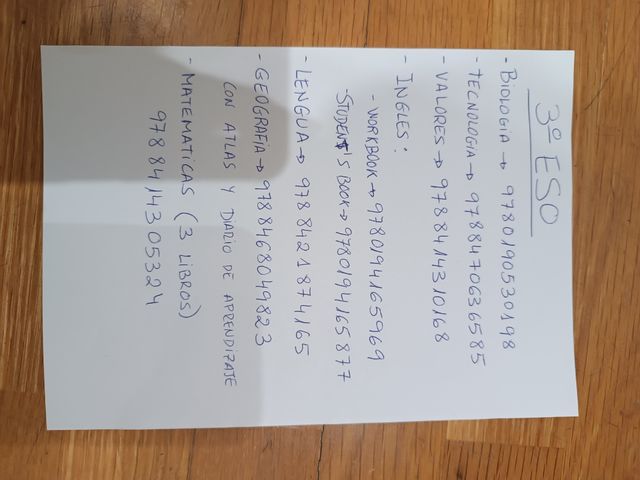 3º ESO
- BIOLOGIA → 9780190530198
- TECNOLOGIA → 9788470636585
- VALORES → 9788414310168
- INGLES:
- WORKBOOK → 9780194165969
- STUDENT'S BOOK → 9780194165877
- LENGUA → 9788421874165
- GEOGRAFIA → 9788468049823
CON ATLAS Y DIARIO DE APRENDIZAJE
- MATEMATICAS (3 LIBROS)
9788414305324